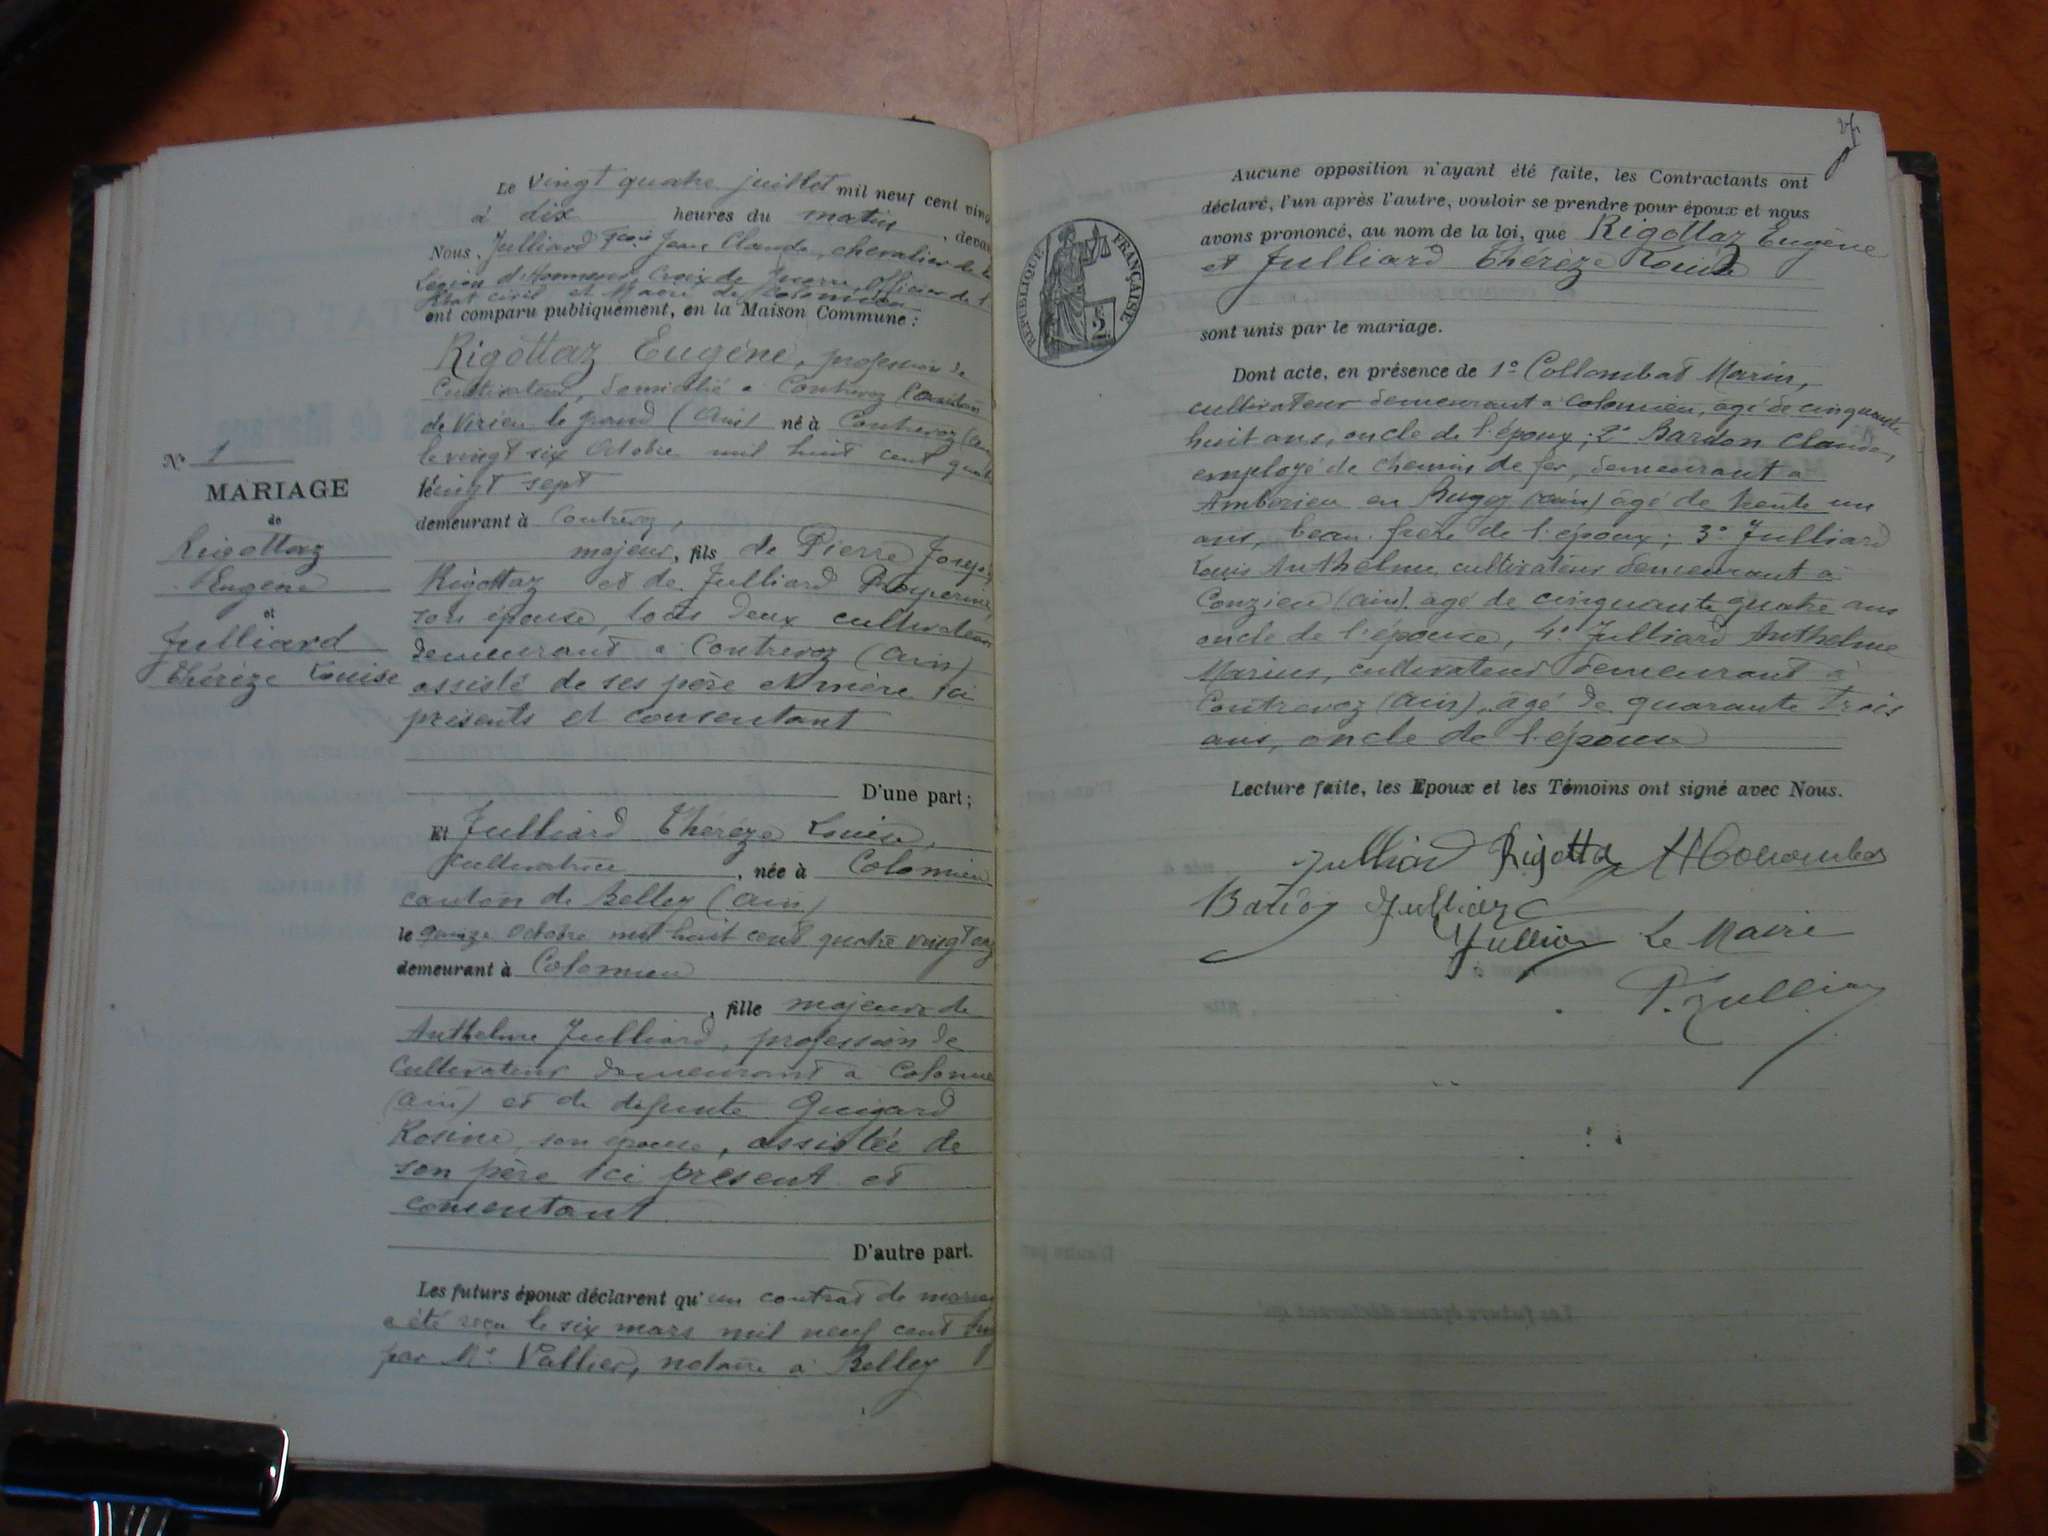 N° 1
MARIAGE
de
Rigottaz
Eugène
et
Julliard
Thérèze Louise
Le vingt quatre juillet mil neuf cent vingt
à dix heures du matin, devant
Nous, Julliard Fçois Jean Claude, chevalier de la
Légion d'Honneur, Croix de Guerre, Officier de l'
Etat civil et Maire de Colomieu
ont comparu publiquement, en la Maison Commune :
Rigottaz Eugène, profession de
Cultivateur, domicilié à Contrevoz Canton
de Virieu le grand (Ain) né à Contrevoz (Ain)
le vingt six Octobre mil huit cent quatre
vingt sept
demeurant à Contrevoz,
majeur, fils de Pierre Joseph
Rigottaz et de Julliard Prosperine
son épouse, tous deux cultivateurs
demeurant à Contrevoz (Ain)
assisté de ses père et mère ici
présents et consentant
D'une part ;
Et Julliard Thérèze Louise,
Cultivatrice, née à Colomieu
canton de Belley (Ain)
le quinze Octobre mil huit cent quatre vingt onze
demeurant à Colomieu
, fille majeure de
Anthelme Julliard, profession de
Cultivateur demeurant à Colomieu
(Ain) et de défunte Guigard
Rosine, son épouse, assistée de
son père ici présent et
consentant
D'autre part.
Les futurs époux déclarent qu'un contrat de mariage
a été reçu le six mars mil neuf cent vingt
par Me Vallier, notaire à Belley
RÉPUBLIQUE FRANÇAISE
Aucune opposition n'ayant été faite, les Contractants ont
déclaré, l'un après l'autre, vouloir se prendre pour époux et nous
avons prononcé, au nom de la loi, que Rigottaz Eugène
et Julliard Thérèze Louise
sont unis par le mariage.
Dont acte, en présence de 1° Collombat Marin,
cultivateur demeurant à Colomieu, âgé de cinquante
huit ans, oncle de l'époux ; 2° Bardon Claude,
employé de chemin de fer, demeurant à
Ambérieu en Bugey (Ain) âgé de trente un
ans, beau-frère de l'époux ; 3° Julliard
Louis Anthelme, cultivateur demeurant à
Conzieu (Ain) âgé de cinquante quatre ans
oncle de l'épouse, 4° Julliard Anthelme
Marius, cultivateur demeurant à
Contrevoz (Ain), âgé de quarante trois
ans, oncle de l'épouse
Lecture faite, les Epoux et les Témoins ont signé avec Nous.
Julliard Rigottaz
Julliard
Julliard Le Maire
Julliard